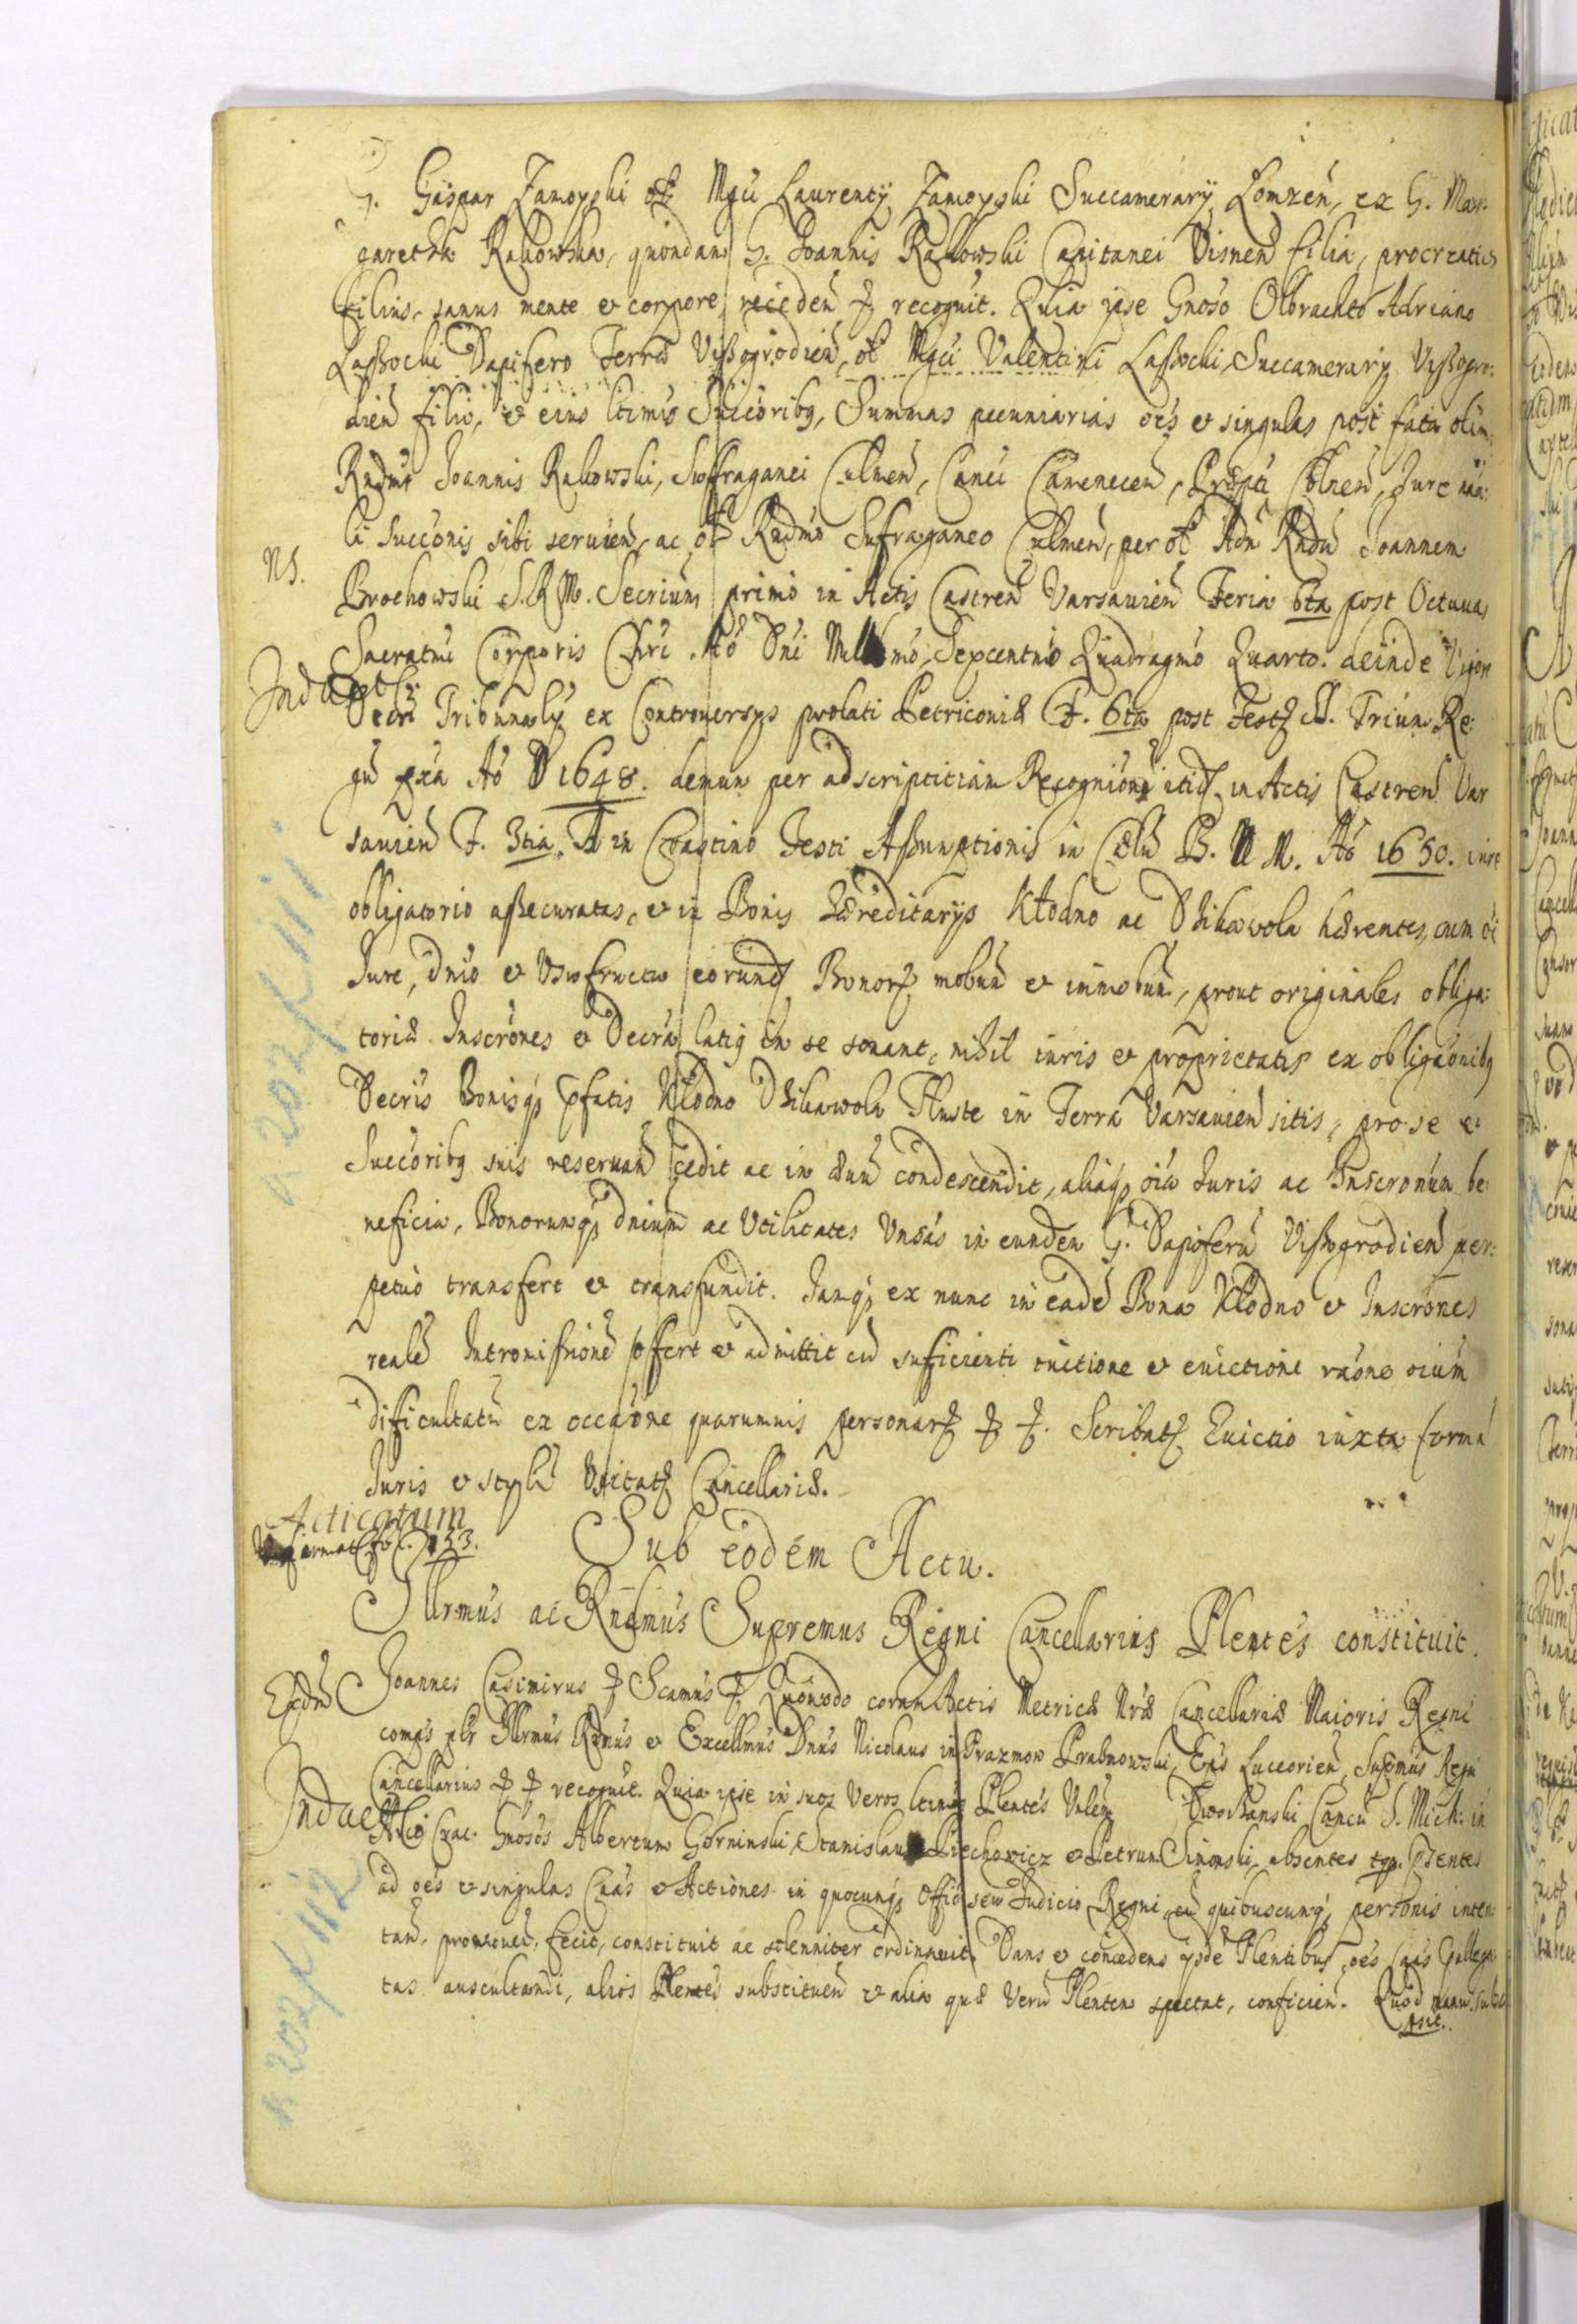 G. Gaspar Zamoyski ol. Mgci Laurentij Zamoyski Succamerarij Lomzen, ex G. Mar-
garetha Rakowska, quondam G. Joannis Rakowski Capitanei Visnen filia, procreatus
filius, sanus mente et corpore, receden recognit. Quia ipse Gnoso Olbrachto Adriano
Lassocki Dapifero Terræ Vissogrodien, ol Mgci Valentini Lassocki Succamerarij Vissogro:
dien filio, et eius ltimis Succoribq, Summas pecuniarias oes et singulas post fata olim
Rndmi Joannis Rakowski, Suffraganei Culmen, Canci Camenecen, Præpti Colnen, Jure
li Succonis sibi seruien, ac ol Rndmo Sufraganeo Culmen, per ol Adm Rndu Joannem
NS.
Brochowski S.R.M. Secrium primo in Actis Castren Varsauien Feria 6ta post Octauas
Sacratmi Corporis Chri Ao Dni Millmo Sexcentmo Quadragmo Quarto. deinde Vigore
Induct
Decri Tribunalij ex Controuersijs prolati Petriconiæ F. 6ta post Fest SS. Trium Re-
gu pxa Ao D 1648. demum per adscriptitiam Recognionem itid in Actis Castren Var
sauien F. 3tia in Crastino Festi Assumptionis in Cœlu B. M. Ao 1650. iure
obligatorio assecuratas, et in Bonis Hæreditarijs Kłodno ac Dzikawola hærentes, cum oi
Jure, dnio et Vsufructu eorund Bonor mobiliu et immobiliu, prout originales obliga-
toriæ Inscrones et Decra latiq in se sonant, nihil iuris et proprietatis ex obligaonibq
Decris Bonisq pfatis Kłodno Dzikawola Tłuste in Terra Varsauien sitis, pro se et
Succoribq suis reseruan cedit ac in eum condescendit, aliaq oia Juris ac Inscronum be-
neficia, Bonorumq dnium ac Vtilitates Vnsas in eunden G. Dapiferu Vissogrodien per-
petuo transfert et transfundit. Jamq ex nunc in eade Bona Kłodno et Inscrones
reale Intromissione pffert et admittit cu suficienti tuitione et euictione raone oium
dificultatu ex occaone quarumuis personar. Scribat Euictio iuxta forma
Juris et stylu Vsitat Cancellariæ.
Acticatum
fol. 153.
Sub eodem Actu.
Illrmus ac Rndmus Supremus Regni Cancellarius Plentes constituit.
Expdn
Joannes Casimirus Scamus Quomodo coram Actis Metricæ Nræ Cancellariæ Maioris Regni
comps plr Illrmus Rndmus et Excellmus Dnus Nicolaus in Prazmow Prazmowski, Eps Luceorien, Supmus Regni
Cancellarius recognit. Quia ipse in suos Veros ltimos Plentes Vnlem Dworzanski Cancu S. Mich: in
Induct
Arce Crac. Gnosos Albertum Gorninski, Stanislaum Liechowicz et Petrum Simonski, absentes tqm Pntes
ad oes et singulas Cas et Actiones in quocunq Offio seu Judicio Regni cu quibuscunq personis inten-
tan, promouen, fecit, constituit ac solenniter ordinauit. Dans et concedens ijsde Plentibus, oes Cas
tas auscultandi, alios Plentes substituen et alia quæ Veru Plentem spectat, conficien. Quod manu subs
psit.
n 202/111
n 202/112